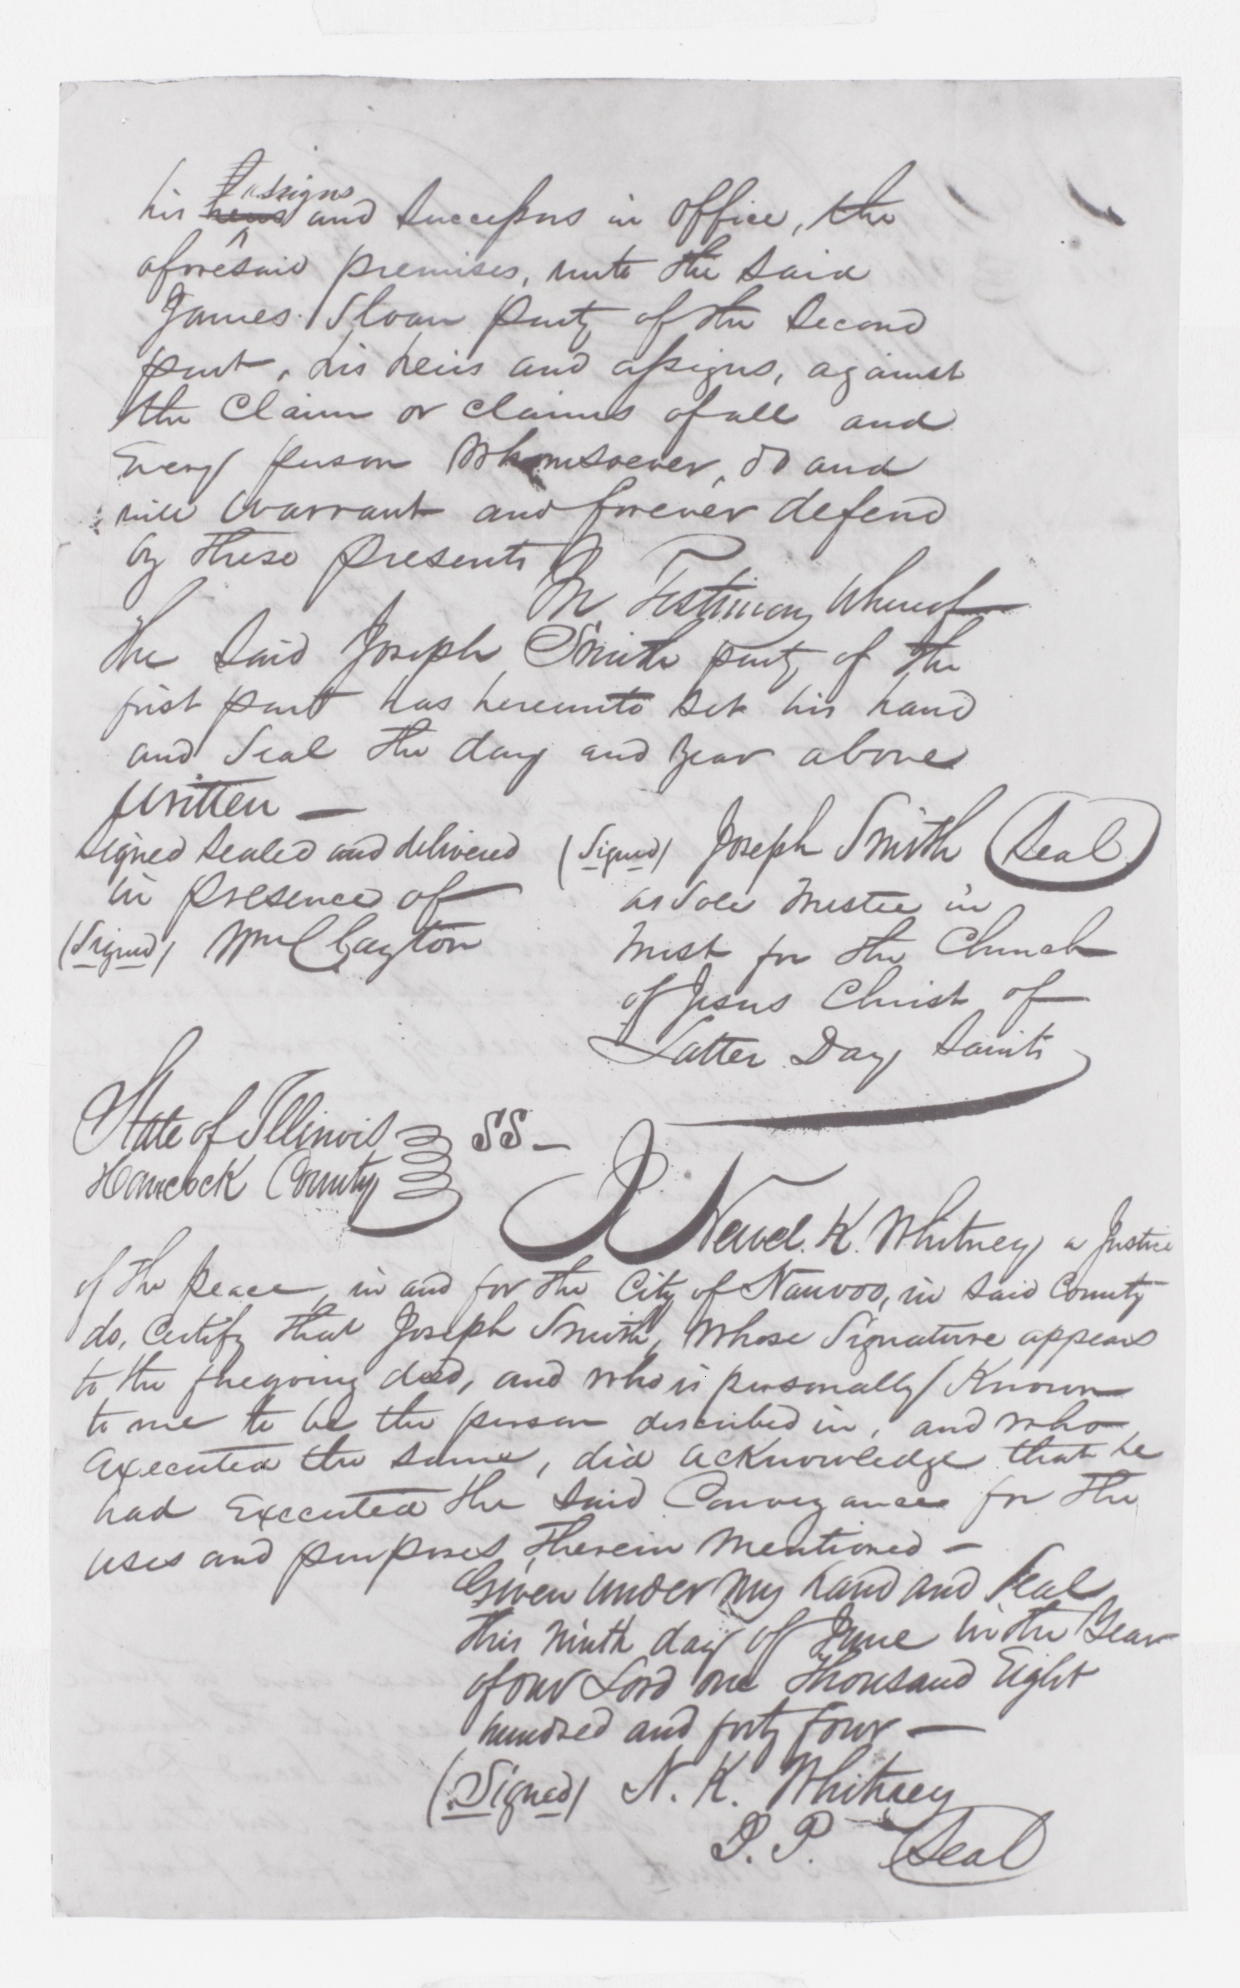 assigns
his heirs and Successors in office, the
aforesaid premises, unto the said
James Sloan party of the Second
part, his heirs and assigns, against
the Claim or claims of all and
Every person Whomsoever, do and
will Warrant and forever defend
by these presents
In Testimony Whereof
the said Joseph Smith party of the
first part has hereunto set his hand
and Seal the day and year above
written —
Signed Sealed and delivered
in presence of
(Signed) Wm Clayton
(Signed) Joseph Smith Seal
as Sole Trustee in
Trust for the Church
of Jesus Christ of
Latter Day Saints
State of Illinois
Hancock County
SS —
I Newel. K. Whitney a Justice
of the Peace, in and for the City of Nauvoo, in said County
do, Certify that Joseph Smith, Whose Signature appears
to the foregoing deed, and who is personally Known
to me to be the person described in, and who
Executed the same, did acknowledge that he
had Executed the said Conveyance for the
uses and purposes, therein Mentioned —
Given under My hand and Seal
this Ninth day of June in the Year
of our Lord one Thousand Eight
hundred and forty four —
(Signed) N. K. Whitney
J. P. Seal